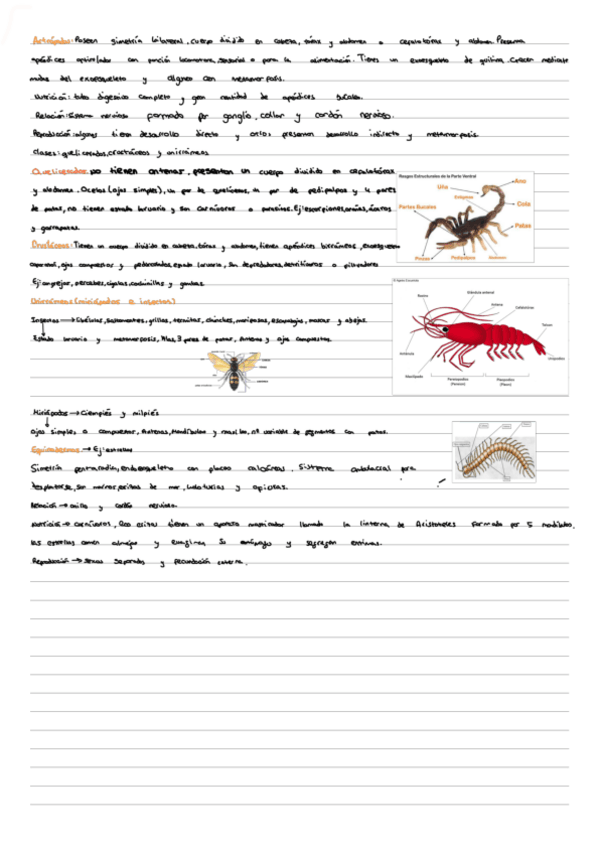 Artrópodos: Poseen simetría bilateral, cuerpo dividido en cabeza, tórax y abdomen o cefalotórax y abdomen. Presenta
apéndices articulados con función locomotora, sensorial o para la alimentación. Tienen un exoesqueleto de quitina. Crecen mediante
mudas del exoesqueleto y algunos con metamorfosis.
Nutrición: tubo digestivo completo y gran cantidad de apéndices bucales.
Relación: sistema nervioso formado por ganglio, collar y cordón nervioso.
Reproducción: algunos tienen desarrollo directo y otros presentan desarrollo indirecto y metamorfosis
Clases: quelicerados, crustáceos y unirrámeos
Quelicerados: no tienen antenas, presentan un cuerpo dividido en cefalotórax
y abdomen. Ocelos (ojos simples), un par de quelíceros, un par de pedipalpos y 4 pares
de patas, no tienen estado larvario y son carnívoros o parásitos. Ej: escorpiones, arañas, ácaros
y garrapatas.
Rasgos Estructurales de la Parte Ventral
Uña
Ano
Cola
Partes Bucales
Patas
Pinzas
Pedipalpo
Crustáceos: Tienen un cuerpo dividido en cabeza, tórax y abdomen, tienen apéndices birrámeos, exoesqueleto
ojos compuestos y pedunculados, estado larvario, son depredadores, detritívoros o filtradores
Ej: cangrejos, percebes, cigalas, cochinillas y gambas.
Unirrámeos (miriápodos o insectos)
Insectos → libélulas, saltamontes, grillos, termitas, chinches, mariposas, escarabajos, moscas y abejas.
Estado larvario y metamorfosis, Alas, 3 pares de patas, Antenas y ojos compuestos.
Miriápodos → Ciempiés y milpiés
ojos simples o compuestos, Antenas, Mandíbulas y maxilas, nº variable de segmentos con patas.
Equinodermos → Ej: estrellas
Simetría pentarradia, endoesqueleto con placas calcáreas. Sistema ambulacral para
desplazarse, son marinos, erizos de mar, holoturias y ofiuras.
Relación → anillo y cordón nervioso.
Nutrición → carnívoros, los erizos tienen un aparato masticador llamado la linterna de Aristóteles formado por 5 mandíbulas,
las estrellas comen almejas y evaginan su estómago y segregan enzimas.
Reproducción → sexos separados y fecundación externa.